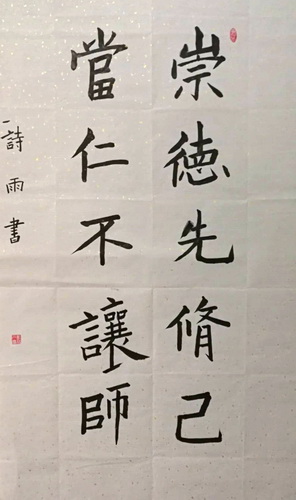 崇德先脩己
當仁不讓師
詩雨書